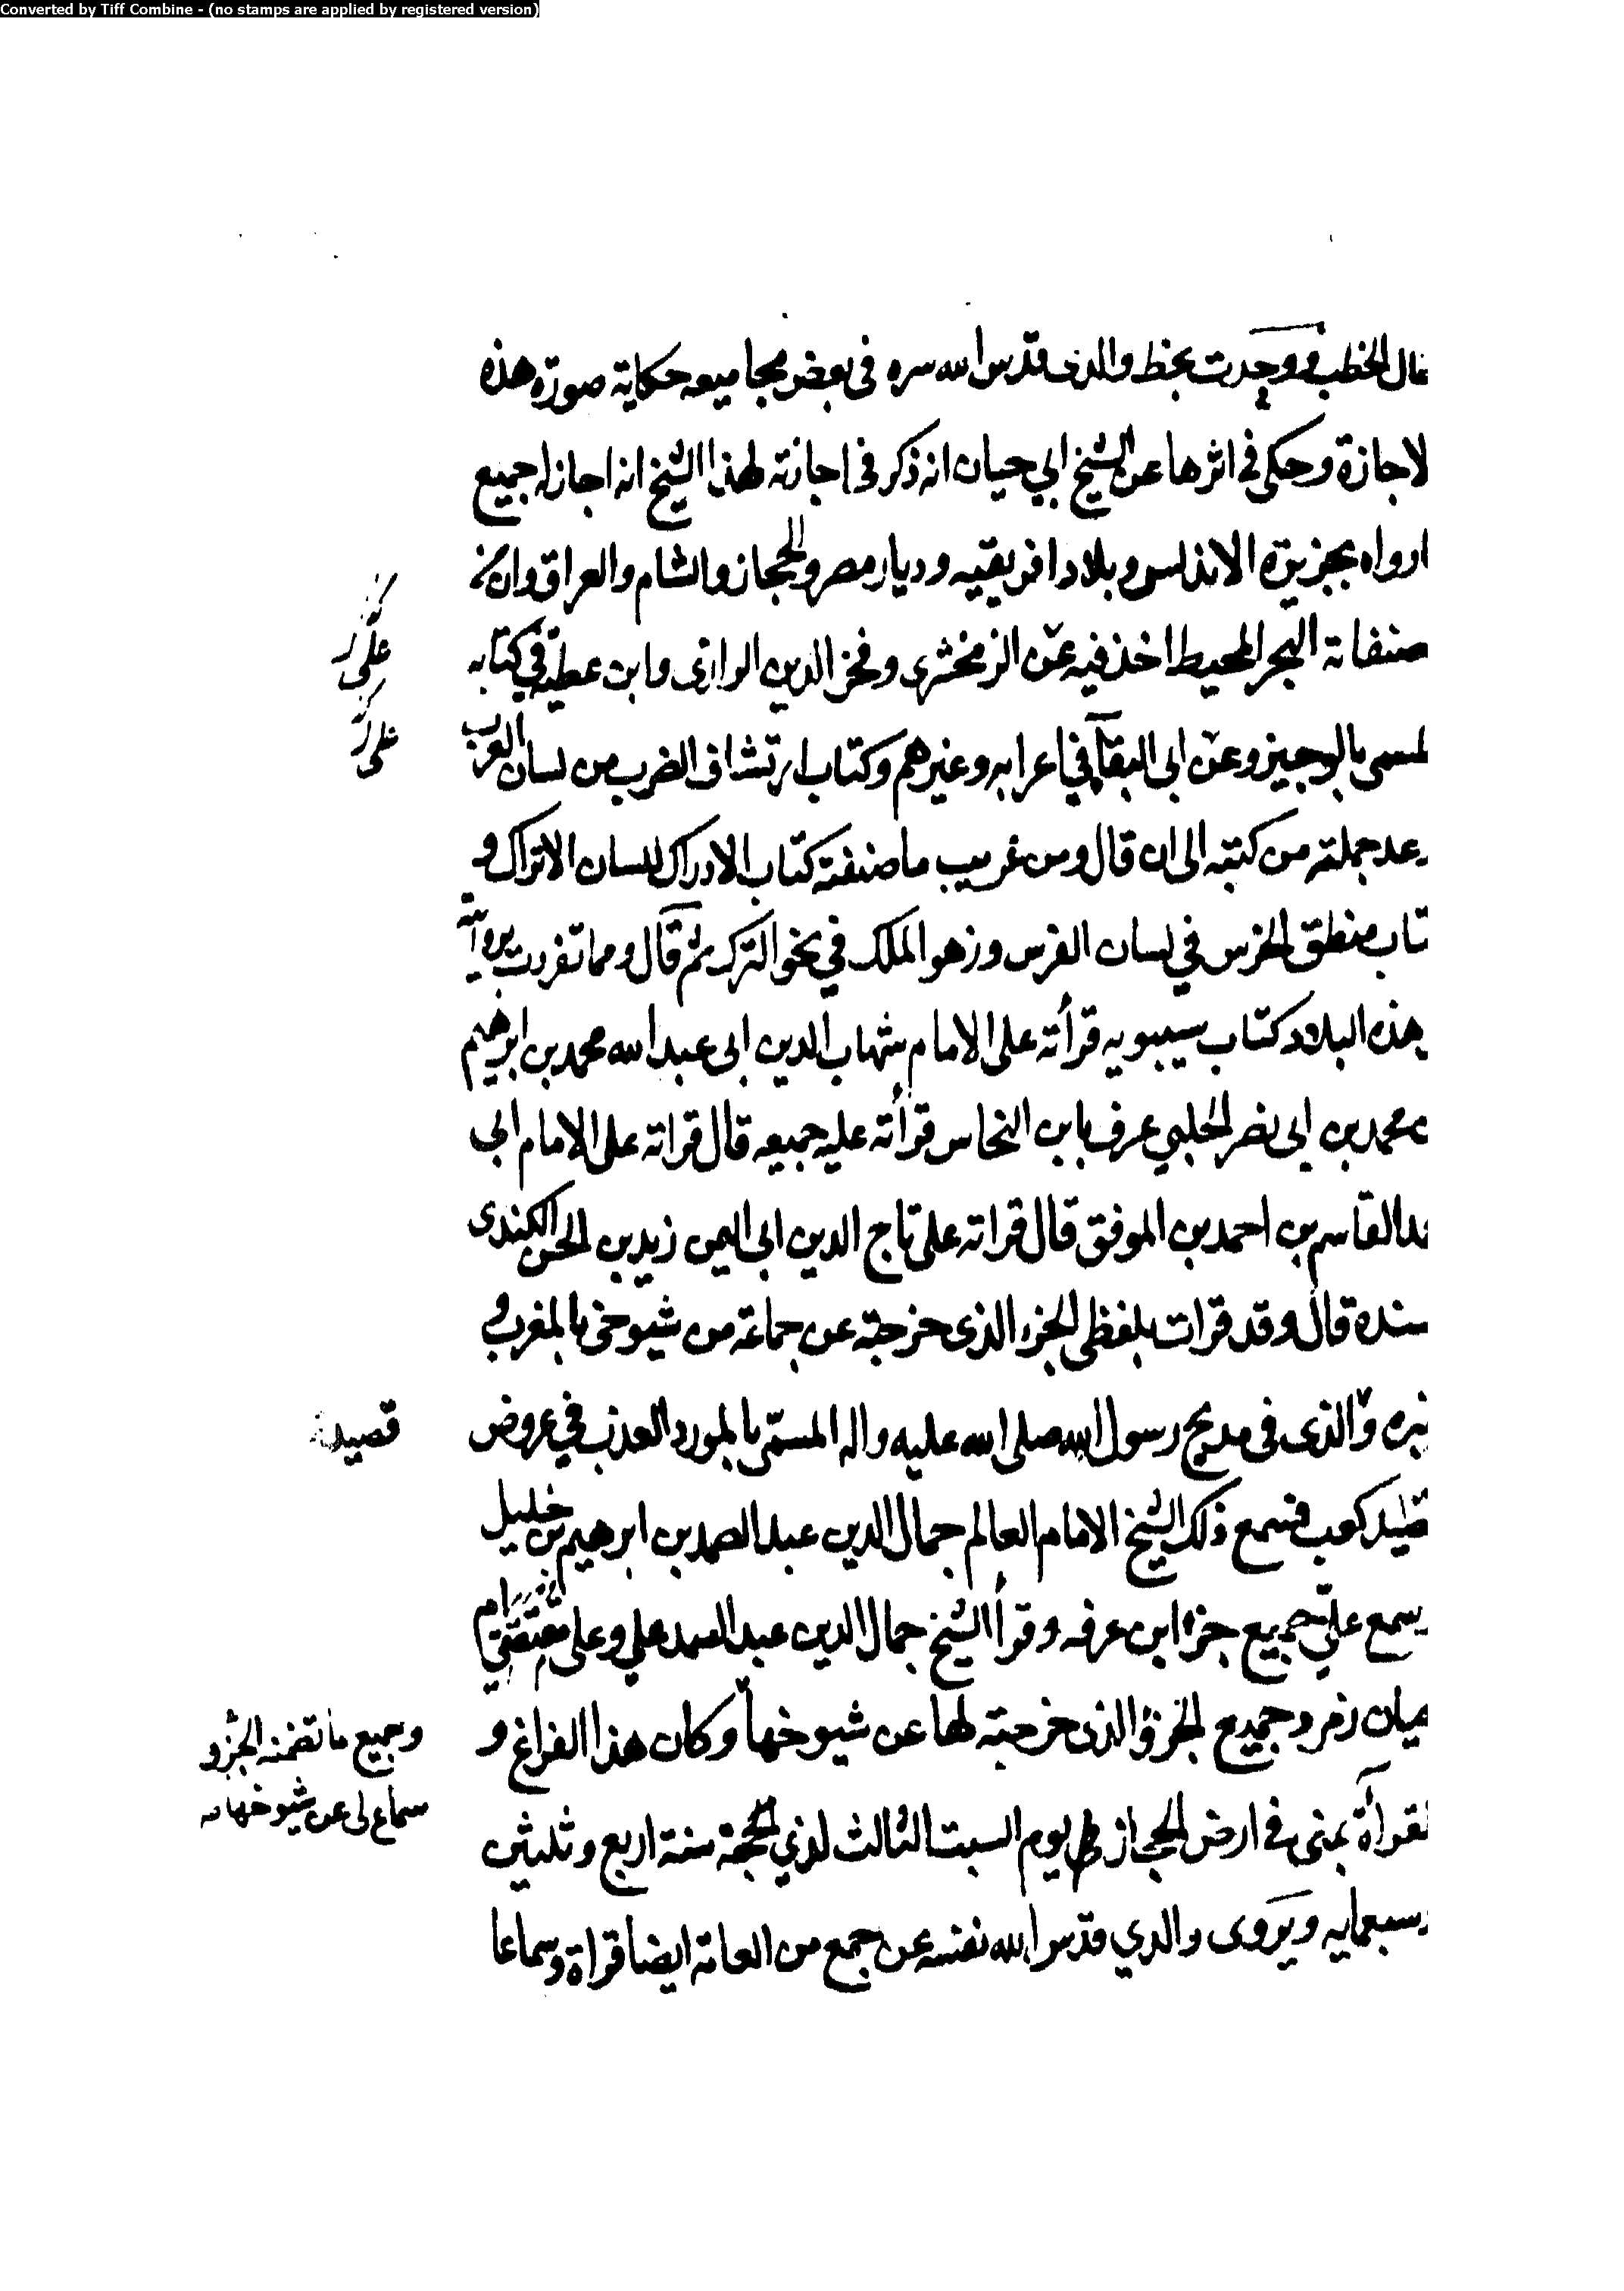 Converted by Tiff Combine - (no stamps are applied by registered version)
الخطب ووجدت بخط والدى قدس الله سره فى بعض مجاميعه حكاية صورة هذه
لاجازة وحكى فى اثرها عن الشيخ ابي حيان انه ذكر فى اجازته لهذا الشيخ انه اجاز له جميع
ارواه بجزيرة الاندلس وبلاد افريقيه وديار مصر والحجاز والشام والعراق وان
صنفاته البحر المحيط اخذ فيه عن الزمخشرى وفخر الدين الرازى وابن عطية في كتابه
لمسمى بالوجيز وعن ابى البقا في اعرابه وغيرهم وكتاب ارتشاف الضرب من لسان العرب
وعد جملة من كتبه الى ان قال ومن غريب ما صنفته كتاب الادراك للسان الاتراك و
تاب منطق الخرس في لسان الفرس وزهو الملك في نحو الترك ثم قال ومما تفردت بروايته
بهذه البلاد كتاب سيبويه قرأته على الامام شهاب الدين ابى عبد الله محمد بن ابرهيم
ن محمد بن ابى نصر الحلبي عرف بابن النحاس قرأته عليه جميعه قال قراته على الامام ابي
القاسم بن احمد بن الموفق قال قراته على تاج الدين ابى اليمن زيد بن الحسن الكندى
سنده قال وقد قرات بلفظى الجزء الذى خرجته عن جماعة من شيوخى بالمغرب و
والذى فى مديح رسول الله صلى الله عليه واله المسمى بالمورد العذب في عروض
قصيد كعب فسمع ذلك الشيخ الامام العالم جمال الدين عبد الصمد بن ابرهيم بن خليل
يسمع علي جميع جزء ابن عرفه وقرأ الشيخ جمال الدين عبد الصمد علي وعلى
حيان زمرد جميع الجزء الذى خرجته لها عن شيوخها وكان هذا الفراغ و
لقرأة بمنى فى ارض الحجاز يوم السبت الثالث لذي الحجة سنة اربع وثلثين
وسبعمايه ويروى والدي قدس الله نفسه عن جمع من العامة ايضا قراة وسماعا
على
على
قصيدة
وجميع ما تضمنه الجزء
سماع لى عن شيوخها